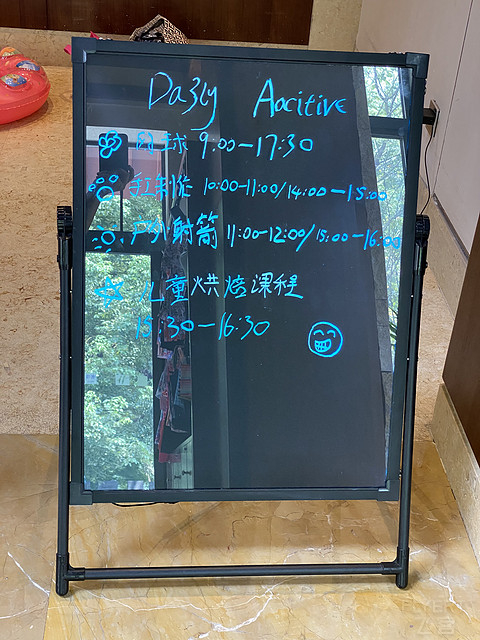 Da3ly Aocitive
网球 9:00-17:30
手工制作 10:00-11:00/14:00-15:00
户外射箭 11:00-12:00/15:00-16:00
儿童烘焙课程
15:30-16:30